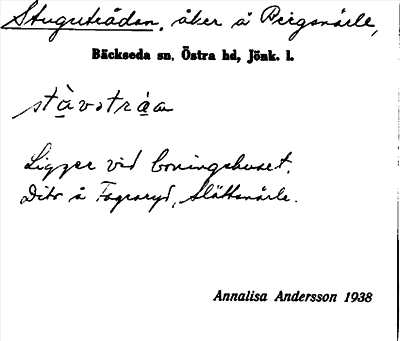 Stuguträdan, åker å Pirgsnärle,
Bäckseda sn, Östra hd, Jönk. l.
stàvətrá̱a
Ligger vid boningshuset.
Dito å Fagraryd, Slättsnärle.
Annalisa Andersson 1938